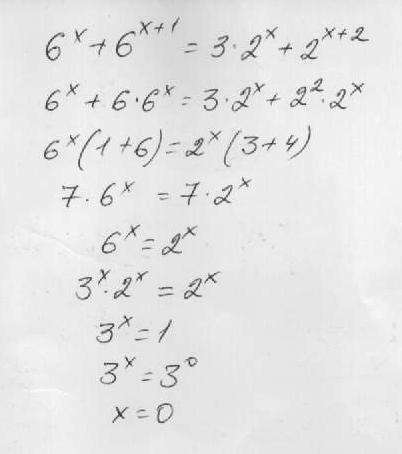 6^x + 6^{x+1} = 3·2^x + 2^{x+2}
6^x + 6·6^x = 3·2^x + 2^2·2^x
6^x(1+6) = 2^x(3+4)
7·6^x = 7·2^x
6^x = 2^x
3^x·2^x = 2^x
3^x = 1
3^x = 3^0
x = 0